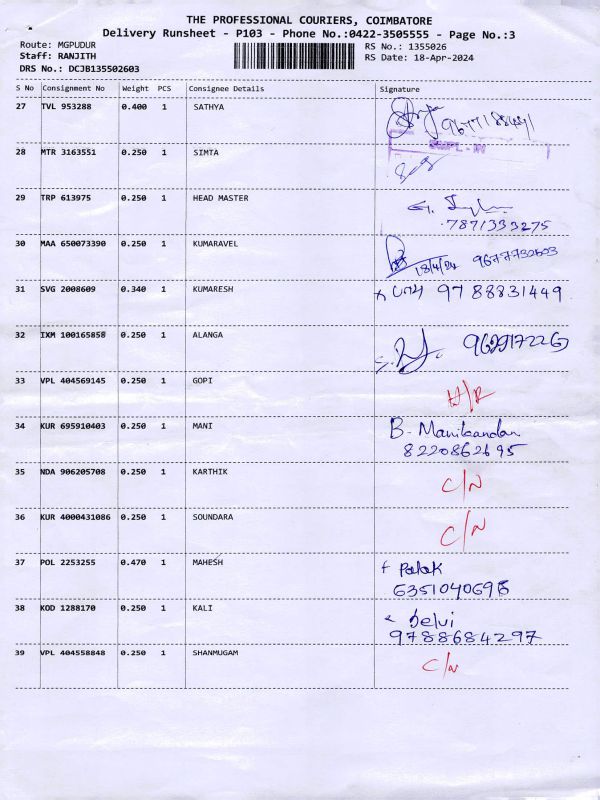 THE PROFESSIONAL COURIERS, COIMBATORE
Delivery Runsheet - P103 - Phone No.:0422-3505555 - Page No.:3
Route: MGPUDUR
RS No.: 1355026
Staff: RANJITH
RS Date: 18-Apr-2024
DRS No.: DCJB135502603
S No Consignment No Weight PCS Consignee Details Signature
27 TVL 953288 0.400 1 SATHYA
28 MTR 3163551 0.250 1 SIMTA
29 TRP 613975 0.250 1 HEAD MASTER
7871333275
30 MAA 650073390 0.250 1 KUMARAVEL
18/4/24 9677730603
31 SVG 2008609 0.340 1 KUMARESH 9788831449
32 IXM 100165858 0.250 1 ALANGA
33 VPL 404569145 0.250 1 GOPI
34 KUR 695910403 0.250 1 MANI B. Manikandan
8220862695
35 NDA 906205708 0.250 1 KARTHIK C/N
36 KUR 4000431086 0.250 1 SOUNDARA C/N
37 POL 2253255 0.470 1 MAHESH Palak
6351040695
38 KOD 1288170 0.250 1 KALI Selvi
9788684297
39 VPL 404558848 0.250 1 SHANMUGAM C/N